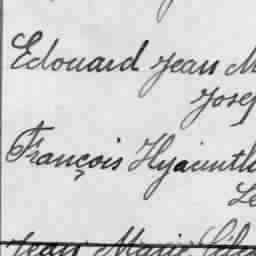 Edouard Jean M
Josep
François Hyacinth
Le
Jean Marie